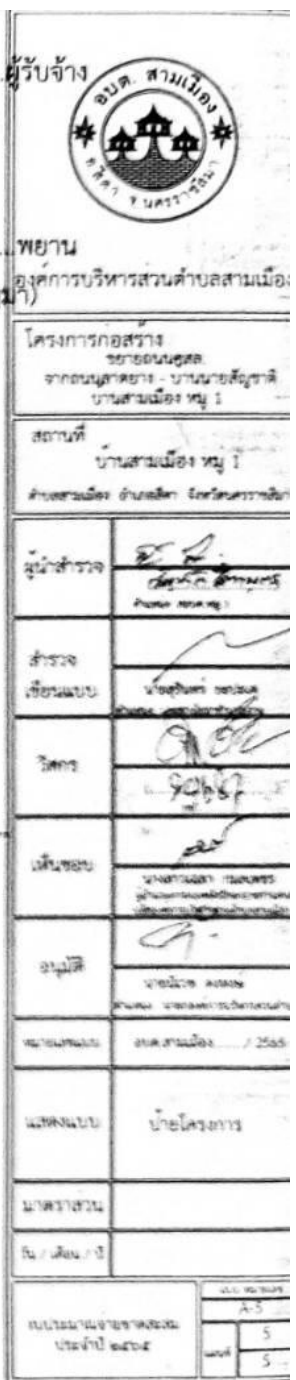 ผู้รับจ้าง
อบต. สามเมือง
อ.สีดา จ.นครราชสีมา
...พยาน
องค์การบริหารส่วนตำบลสามเมือง
มา)
โครงการก่อสร้าง
ขยายถนนคสล.
จากถนนลาดยาง - บ้านนายสัญชาติ
บ้านสามเมือง หมู่ 1
สถานที่
บ้านสามเมือง หมู่ 1
ตำบลสามเมือง อำเภอสีดา จังหวัดนครราชสีมา
ผู้นำสำรวจ
สำรวจ
เขียนแบบ
นายสุรินทร์
วิศวกร
เห็นชอบ
อนุมัติ
หมายเลขแบบ
อบต.สามเมือง....... / 2565
แสดงแบบ
ป้ายโครงการ
มาตราส่วน
วัน / เดือน / ปี
งบประมาณจ่ายขาดสะสม
ประจำปี ๒๕๖๕
แบบ หมายเลข
A-5
5
แผ่นที่
5